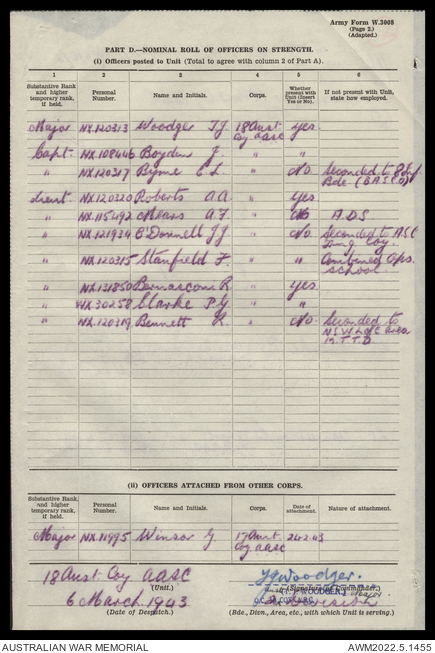 Army Form W.3008
(Page 2.)
(Adapted.)
PART D.—NOMINAL ROLL OF OFFICERS ON STRENGTH.
(i) Officers posted to Unit (Total to agree with column 2 of Part A).
1 2 3 4 5 6
Substantive Rank and higher temporary rank, if held. Personal Number. Name and Initials. Corps. Whether present with Unit (Insert Yes or No). If not present with Unit, state how employed.
Major NX.120313 Woodger T.J. 18 Aust Coy AASC Yes
Capt NX.108446 Boyden J. " "
" NX.120317 Byrne E L. " No Seconded to 8 Inf. Bde (BASCO)
Lieut NX.120320 Roberts A.A. " Yes
" NX.115492 Mears A.F. " No A.D.S
" NX.121934 O'Donnell J J " No Seconded to ASC Trng Coy.
" NX.120315 Stanfield F. " " Combined Ops. School
" NX.131850 Bernasconi R. " Yes
" NX.30258 Clarke P.G " "
" NX.120319 Bennett R. " No Seconded to NSW L of C Area M.T.T.D
(ii) OFFICERS ATTACHED FROM OTHER CORPS.
Substantive Rank, and higher temporary rank, if held. Personal Number. Name and Initials. Corps. Date of attachment. Nature of attachment.
Major NX.11995 Winsor G 17 Aust. Coy AASC 24.2.43
18 Aust. Coy AASC
(Unit.)
6 March 1943
(Date of Despatch.)
TJ Woodger.
(Signature of Commander)
(T.J. WOODGER) Major
(Bde., Divn., Area, etc., with which Unit is serving.)
AUSTRALIAN WAR MEMORIAL
AWM2022.5.1455